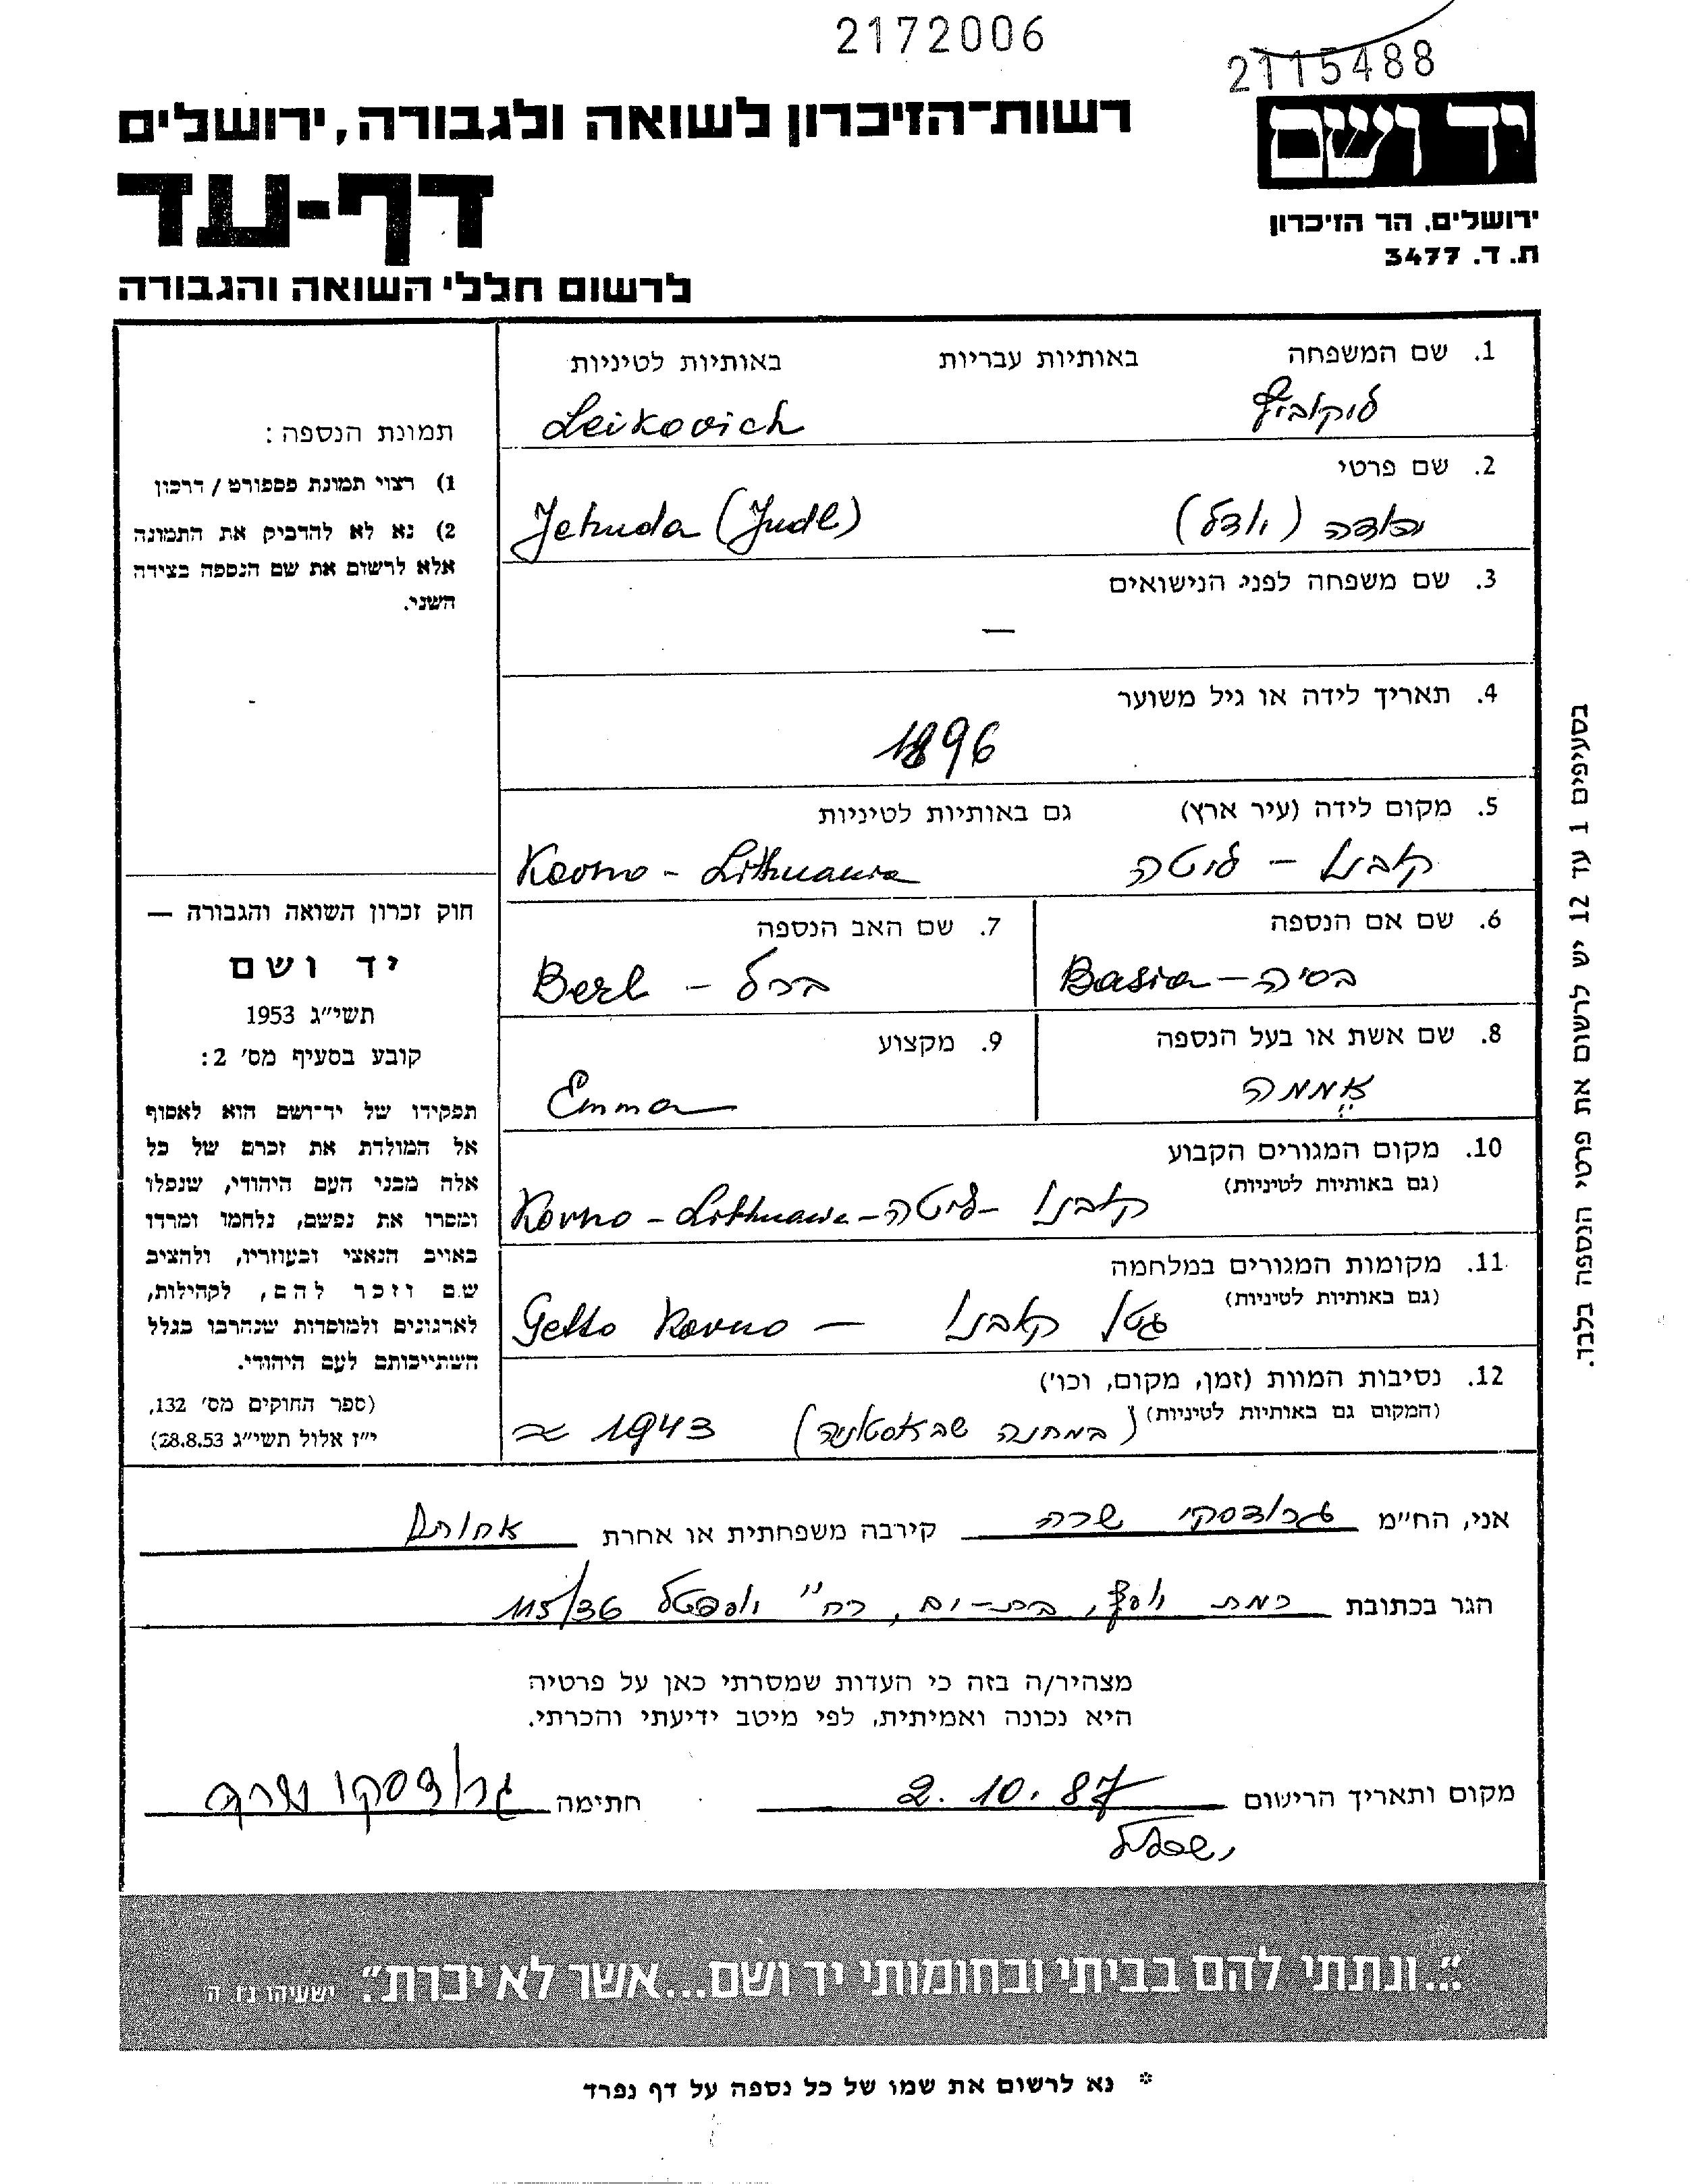 2172006
2115488
רשות־הזיכרון לשואה ולגבורה, ירושלים
יד ושם
דף-עד
ירושלים, הר הזיכרון
ת. ד. 3477
לרשום חללי השואה והגבורה
1. שם המשפחה באותיות עבריות באותיות לטיניות
ליקוביץ Leikovich
2. שם פרטי
יהודה (יודל) Jehuda (Judl)
3. שם משפחה לפני הנישואים
—
4. תאריך לידה או גיל משוער
1896
5. מקום לידה (עיר ארץ) גם באותיות לטיניות
קובנו - ליטה Kovno - Lithuania
6. שם אם הנספה
בסיה - Basia
7. שם האב הנספה
ברל - Berl
8. שם אשת או בעל הנספה
אממה
9. מקצוע
Emma
10. מקום המגורים הקבוע
(גם באותיות לטיניות)
קובנו - ליטה - Kovno - Lithuania
11. מקומות המגורים במלחמה
(גם באותיות לטיניות)
גטו קובנו — Getto Kovno
12. נסיבות המוות (זמן, מקום, וכו')
(המקום גם באותיות לטיניות)
(במחנה שבאסטוניה) 1943 ≈
תמונת הנספה:
1) רצוי תמונת פספורט / דרכון
2) נא לא להדביק את התמונה
אלא לרשום את שם הנספה בצידה
השני.
חוק זכרון השואה והגבורה —
יד ושם
תשי״ג 1953
קובע בסעיף מס' 2:
תפקידו של יד־ושם הוא לאסוף
אל המולדת את זכרם של כל
אלה מבני העם היהודי, שנפלו
ומסרו את נפשם, נלחמו ומרדו
באויב הנאצי ובעוזריו, ולהציב
שם וזכר להם, לקהילות,
לארגונים ולמוסדות שנהרבו בגלל
השתייכותם לעם היהודי.
(ספר החוקים מס' 132,
י״ז אלול תשי״ג 28.8.53)
בסעיפים 1 עד 12 יש לרשום את פרטי הנספה בלבד.
אני, הח״מ גרודסקי שרה קירבה משפחתית או אחרת אחותו
הגר בכתובת רמת יוסף, בת-ים, רח' יוספטל 115/36
מצהיר/ה בזה כי העדות שמסרתי כאן על פרטיה
היא נכונה ואמיתית, לפי מיטב ידיעתי והכרתי.
מקום ותאריך הרישום 2.10.87 חתימה גרודסקי שרה
״...ונתתי להם בביתי ובחומותי יד ושם...אשר לא יכרת״. ישעיהו נו, ה
* נא לרשום את שמו של כל נספה על דף נפרד